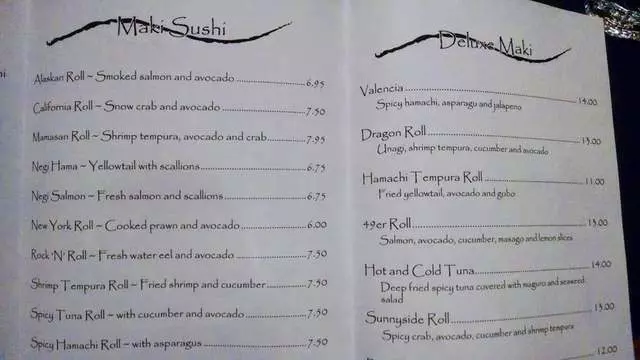 Maki Sushi
Alaskan Roll ~ Smoked salmon and avocado 6.95
California Roll ~ Snow crab and avocado 7.50
Mamasan Roll ~ Shrimp tempura, avocado and crab 7.95
Negi Hama ~ Yellowtail with scallions 6.75
Negi Salmon ~ Fresh salmon and scallions 6.75
New York Roll ~ Cooked prawn and avocado 6.00
Rock 'N' Roll ~ Fresh water eel and avocado 7.50
Shrimp Tempura Roll ~ Fried shrimp and cucumber 7.50
Spicy Tuna Roll ~ with cucumber and avocado 7.50
Spicy Hamachi Roll ~ with asparagus 7.50
Deluxe Maki
Valencia 14.00
Spicy hamachi, asparagu and jalapeno
Dragon Roll 13.00
Unagi, shrimp tempura, cucumber and avocado
Hamachi Tempura Roll 11.00
Fried yellowtail, avocado and gobo
49er Roll 13.00
Salmon, avocado, cucumber, masago and lemon slices
Hot and Cold Tuna 14.00
Deep fried spicy tuna covered with maguro and seaweed
salad
Sunnyside Roll 13.00
Spicy crab, avocado, cucumber and shrimp tempura
12.00